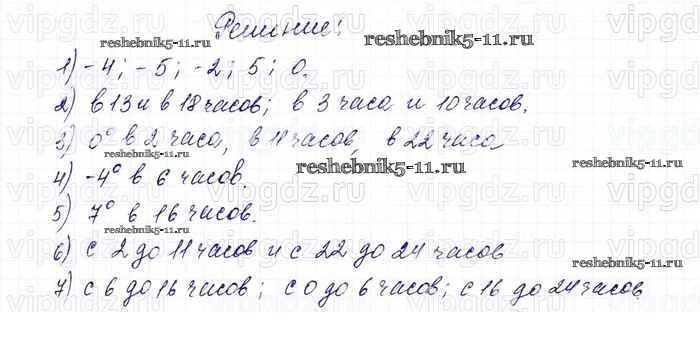 Решение:
reshebnik5-11.ru
reshebnik5-11.ru
1) -4; -5; -2; 5; 0.
2) в 13 и в 18 часов; в 3 часа и 10 часов.
3) 0° в 2 часа, в 11 часов, в 22 часа
reshebnik5-11.ru
reshebnik5-11.ru
reshebnik5-11.ru
4) -4° в 6 часов.
5) 7° в 16 часов.
reshebnik5-11.ru
6) с 2 до 11 часов и с 22 до 24 часов
reshebnik5-11.ru
7) с 6 до 16 часов; с 0 до 6 часов; с 16 до 24 часов.
vipgdz.ru vipgdz.ru vipgdz.ru vipgdz.ru